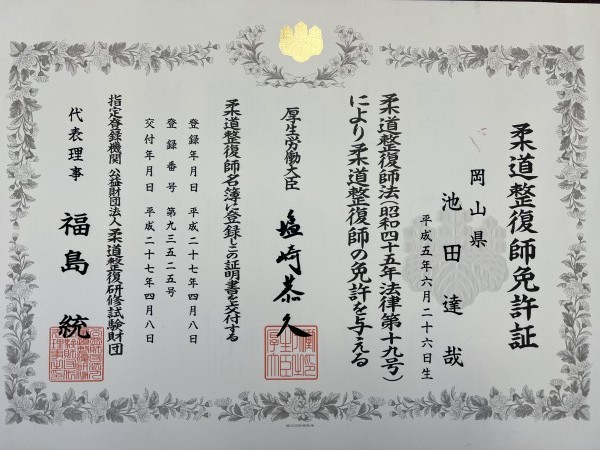 柔道整復師免許証
岡山県
池田達哉
平成五年六月二十六日生
柔道整復師法(昭和四十五年法律第十九号)
により柔道整復師の免許を与える
厚生労働大臣 塩崎恭久
柔道整復師名簿に登録しこの証明書を交付する
登録年月日 平成二十七年四月八日
登録番号 第九三五二五号
交付年月日 平成二十七年四月八日
指定登録機関 公益財団法人柔道整復研修試験財団
代表理事 福島統